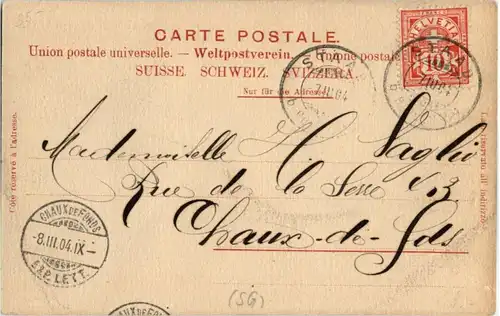 CARTE POSTALE.
Union postale universelle. — Weltpostverein. — Unione postale
SUISSE. SCHWEIZ. SVIZZERA.
Nur für die Adresse.
HELVETIA
10
STAAD
7.III.04
Côté réservé à l'adresse.
Mademoiselle H. Saglio
Rue de la Serre
Chaux-de-Fds
CHAUX DE FONDS
-8.III.04.IX-
EXP. LETT.
CHAUX DE FONDS
(SG)